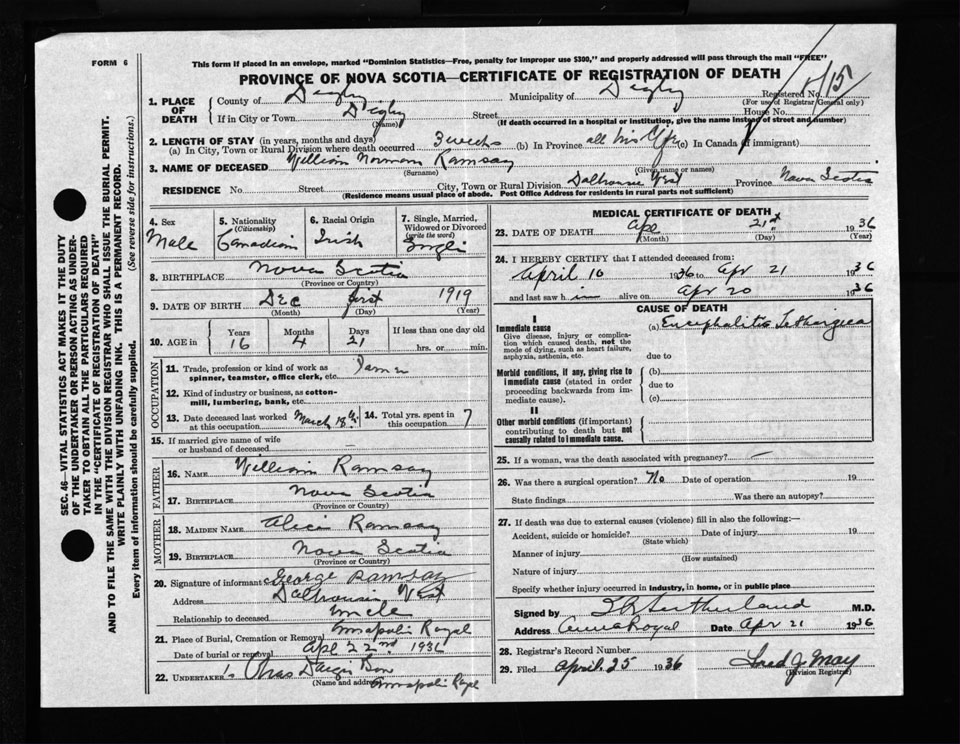 FORM 6
This form if placed in an envelope, marked "Dominion Statistics—Free, penalty for improper use $300," and properly addressed will pass through the mail "FREE"
PROVINCE OF NOVA SCOTIA—CERTIFICATE OF REGISTRATION OF DEATH
1. PLACE OF DEATH
County of Digby Municipality of Digby Registered No. 15
(For use of Registrar General only)
If in City or Town Digby Street House No.
(Name) (If death occurred in a hospital or institution, give the name instead of street and number)
2. LENGTH OF STAY (in years, months and days)
(a) In City, Town or Rural Division where death occurred 3 weeks (b) In Province all his life (c) In Canada (if immigrant)
3. NAME OF DECEASED William Norman Ramsay
(Surname) (Given name or names)
RESIDENCE No. Street City, Town or Rural Division Dalhousie West Province Nova Scotia
(Residence means usual place of abode. Post Office Address for residents in rural parts not sufficient)
4. Sex Male
5. Nationality (Citizenship) Canadian
6. Racial Origin Irish
7. Single, Married, Widowed or Divorced (write the word) Single
8. BIRTHPLACE Nova Scotia
(Province or Country)
9. DATE OF BIRTH Dec first 1919
(Month) (Day) (Year)
10. AGE in Years 16 Months 4 Days 21 If less than one day old hrs. or min.
OCCUPATION
11. Trade, profession or kind of work as spinner, teamster, office clerk, etc.
12. Kind of industry or business, as cotton-mill, lumbering, bank, etc.
13. Date deceased last worked at this occupation March
14. Total yrs. spent in this occupation 7
15. If married give name of wife or husband of deceased
FATHER
16. NAME William Ramsay
17. BIRTHPLACE Nova Scotia
(Province or Country)
MOTHER
18. MAIDEN NAME Ramsay
19. BIRTHPLACE Nova Scotia
(Province or Country)
20. Signature of informant George Ramsay
Address Dalhousie West
Relationship to deceased Uncle
21. Place of Burial, Cremation or Removal Annapolis Royal
Date of burial or removal Apl 22nd 1936
22. UNDERTAKER
(Name and address) Annapolis Royal
MEDICAL CERTIFICATE OF DEATH
23. DATE OF DEATH Apr 21st 1936
(Month) (Day) (Year)
24. I HEREBY CERTIFY that I attended deceased from:
April 10 1936 to Apr 21 1936
and last saw him alive on Apr 20 1936
CAUSE OF DEATH
I
Immediate cause
Give disease, injury or complication which caused death, not the mode of dying, such as heart failure, asphyxia, asthenia, etc.
(a) Encephalitis Lethargica
due to
Morbid conditions, if any, giving rise to immediate cause (stated in order proceeding backwards from immediate cause).
(b)
due to
(c)
II
Other morbid conditions (if important) contributing to death but not causally related to immediate cause.
25. If a woman, was the death associated with pregnancy? —
26. Was there a surgical operation? No Date of operation 19
State findings Was there an autopsy?
27. If death was due to external causes (violence) fill in also the following:—
Accident, suicide or homicide? Date of injury 19
(State which)
Manner of injury
(How sustained)
Nature of injury
Specify whether injury occurred in industry, in home, or in public place
Signed by Sutherland M.D.
Address Anna Royal Date Apr 21 1936
28. Registrar's Record Number
29. Filed April 25 1936 May
(Division Registrar)
SEC. 46—VITAL STATISTICS ACT MAKES IT THE DUTY
OF THE UNDERTAKER OR PERSON ACTING AS UNDER-
TAKER TO OBTAIN ALL THE PARTICULARS REQUIRED
IN THE "CERTIFICATE OF REGISTRATION OF DEATH"
AND TO FILE THE SAME WITH THE DIVISION REGISTRAR WHO SHALL ISSUE THE BURIAL PERMIT.
WRITE PLAINLY WITH UNFADING INK. THIS IS A PERMANENT RECORD.
Every item of information should be carefully supplied. (See reverse side for instructions.)